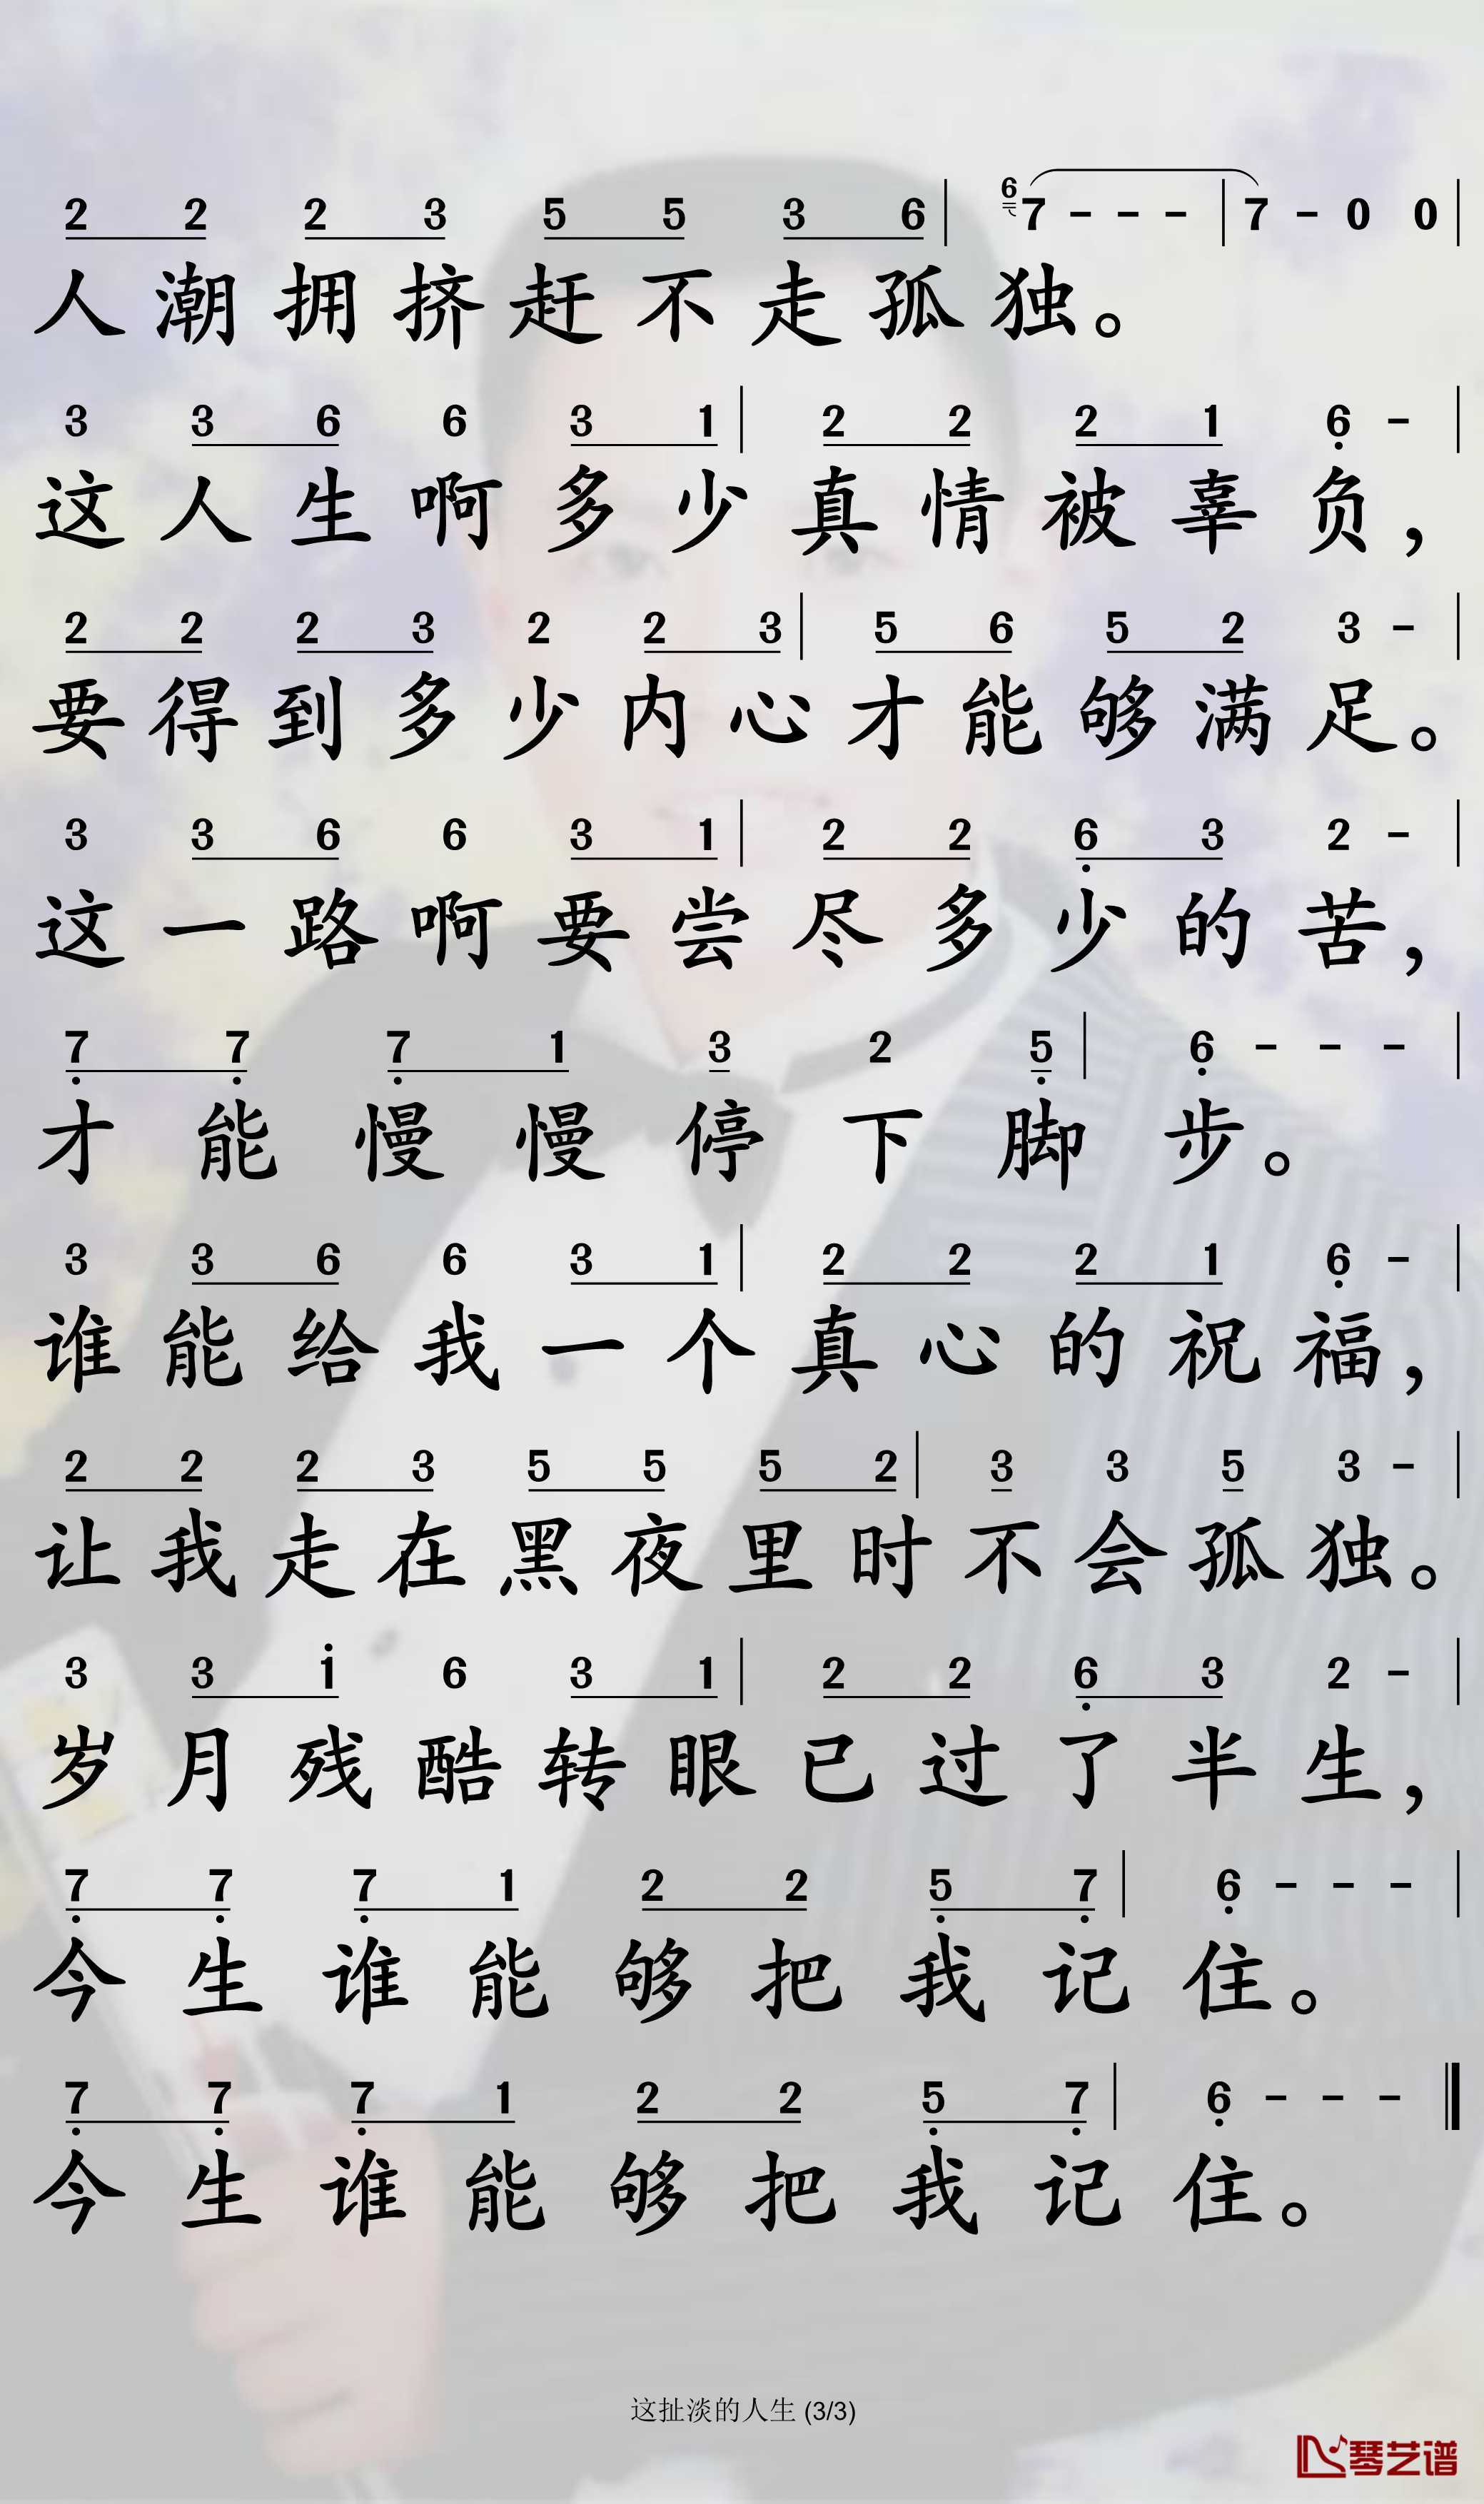 2 2 2 3 5 5 3 6 | 6 7 - - - | 7 - 0 0 |
人潮拥挤赶不走孤独。
3 3 6 6 3 1 | 2 2 2 1 6̣ - |
这人生啊多少真情被辜负，
2 2 2 3 2 2 3 | 5 6 5 2 3 - |
要得到多少内心才能够满足。
3 3 6 6 3 1 | 2 2 6̣ 3 2 - |
这一路啊要尝尽多少的苦，
7̣ 7̣ 7̣ 1 3 2 5̣ | 6̣ - - - |
才能慢慢停下脚步。
3 3 6 6 3 1 | 2 2 2 1 6̣ - |
谁能给我一个真心的祝福，
2 2 2 3 5 5 5 2 | 3 3 5 3 - |
让我走在黑夜里时不会孤独。
3 3 1̇ 6 3 1 | 2 2 6̣ 3 2 - |
岁月残酷转眼已过了半生，
7̣ 7̣ 7̣ 1 2 2 5̣ 7̣ | 6̣ - - - |
今生谁能够把我记住。
7̣ 7̣ 7̣ 1 2 2 5̣ 7̣ | 6̣ - - - ‖
今生谁能够把我记住。
这扯淡的人生 (3/3)
琴艺谱